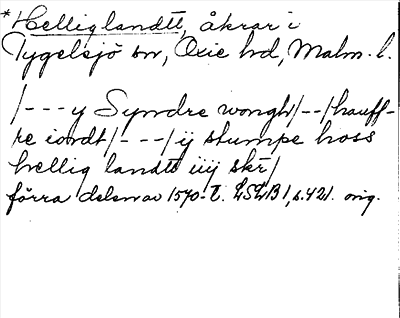 *Hellig landtt, åkrar i
Tygelsjö sn, Oxie hd, Malm. l.
/---y Syndre wongh/--/hauff-
re iordt/---/ij stumpe hoss
hellig landtt iiij skr/
förra delen av 1570-t. LSLB 1, s. 421. orig.